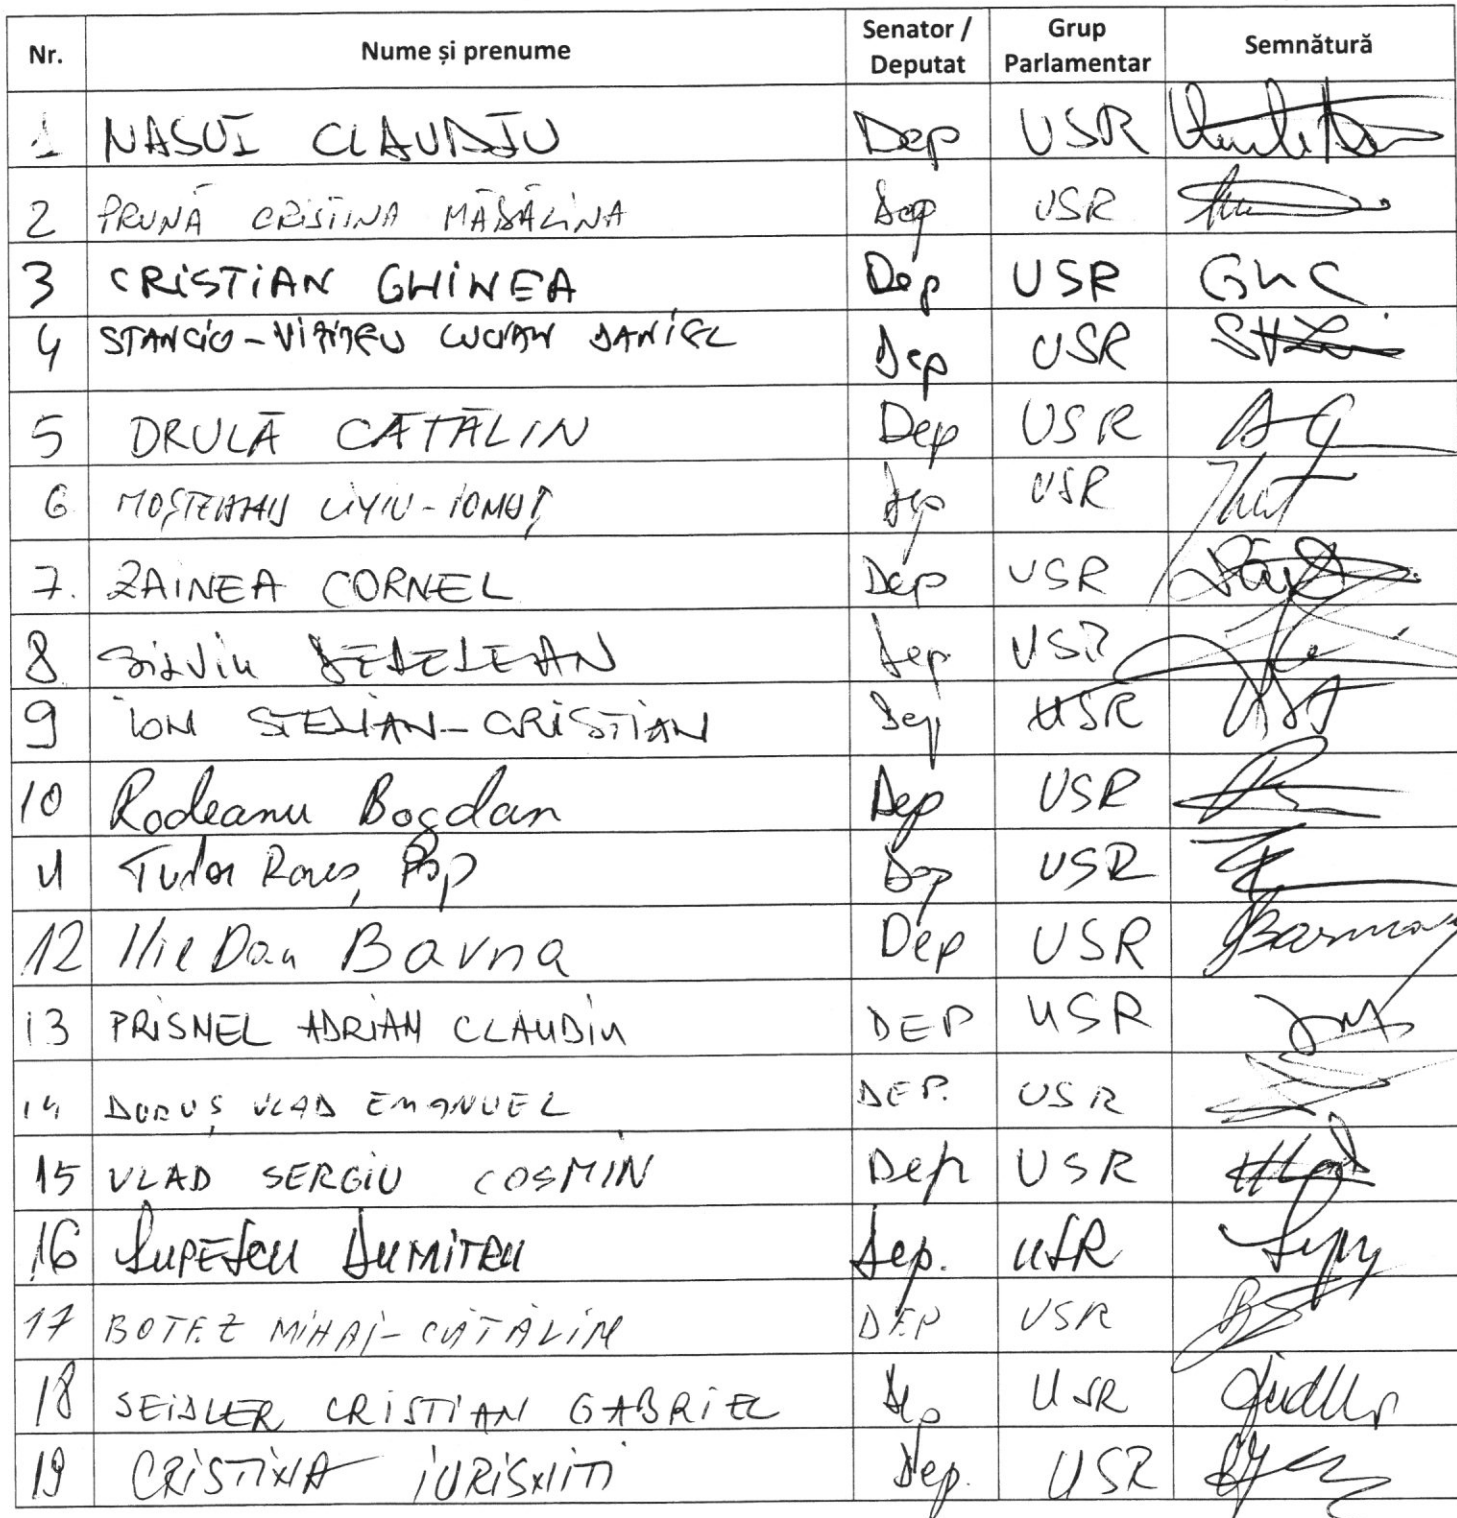 Nr. Nume și prenume Senator / Deputat Grup Parlamentar Semnătură
1 NASUI CLAUDIU Dep USR
2 PRUNĂ CRISTINA MĂDĂLINA Dep USR
3 CRISTIAN GHINEA Dep USR GHC
4 STANCIU-VIZITEU LUCIAN DANIEL Dep USR
5 DRULĂ CĂTĂLIN Dep USR
6 MOȘTEANU LIVIU-IONUȚ Dep USR
7. ZAINEA CORNEL Dep USR
8 SILVIU DEDELEAN Dep USR
9 ION STELIAN-CRISTIAN Dep USR
10 Rodeanu Bogdan Dep USR
11 Tudor Rareș Pop Dep USR
12 Ilie Dan Barna Dep USR Barna
13 PRISNEL ADRIAN CLAUDIU DEP USR
14 DURUȘ VLAD EMANUEL DEP. USR
15 VLAD SERGIU COSMIN Dep USR
16 LUPESCU DUMITRU Dep. USR
17 BOTEZ MIHAI-CĂTĂLIN DEP USR
18 SEIDLER CRISTIAN GABRIEL Dep USR
19 CRISTINA IURISNITI Dep. USR